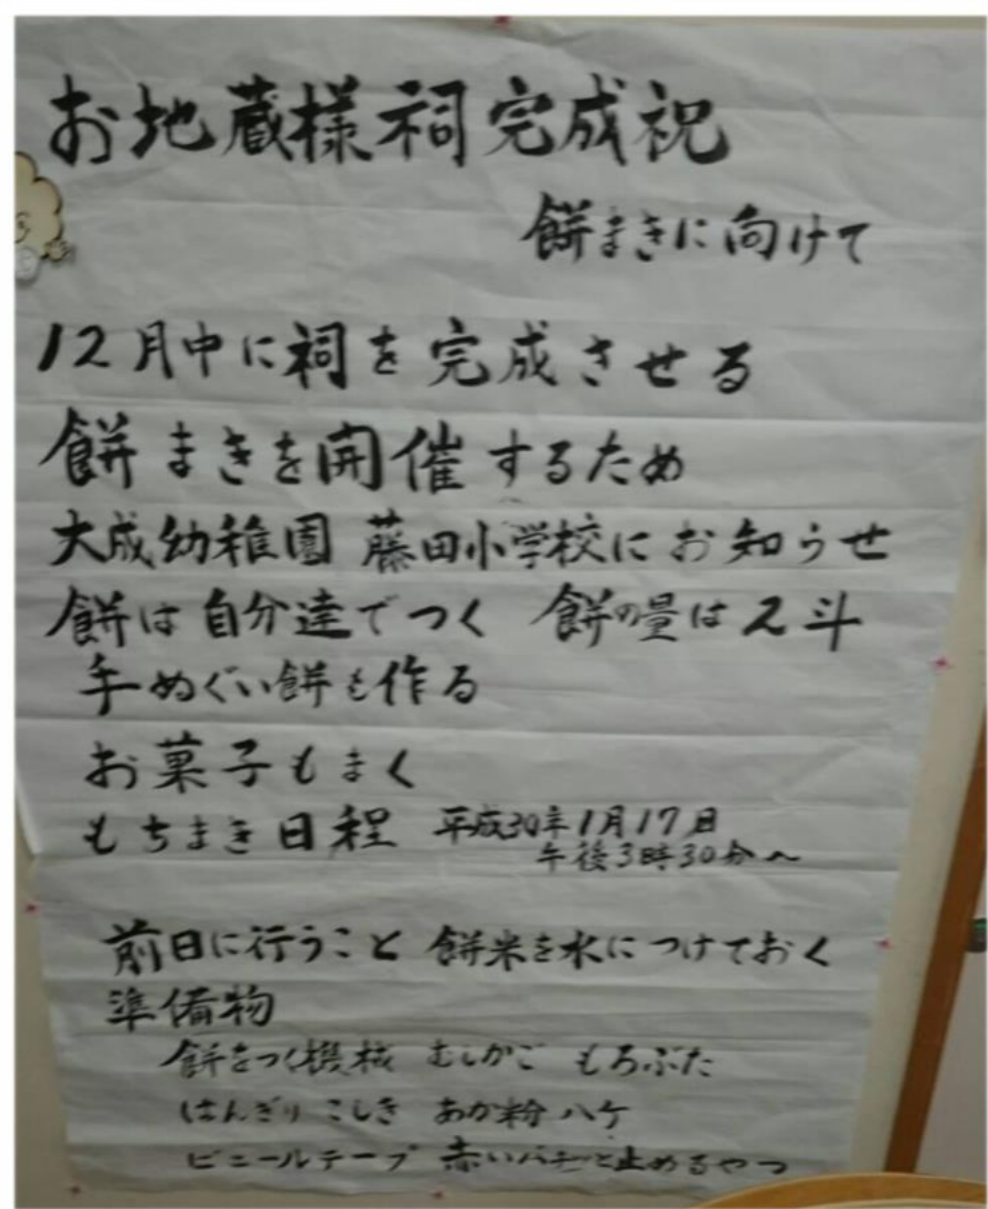 お地蔵様祠完成祝
餅まきに向けて
12月中に祠を完成させる
餅まきを開催するため
大成幼稚園 藤田小学校にお知らせ
餅は自分達でつく 餅の量は2斗
手ぬぐい餅も作る
お菓子もまく
もちまき日程 平成30年1月17日
午後3時30分〜
前日に行うこと 餅米を水につけておく
準備物
餅をつく機械 むしかご もろぶた
はんぎり こしき あか粉 ハケ
ビニールテープ 赤いパチッと止めるやつ